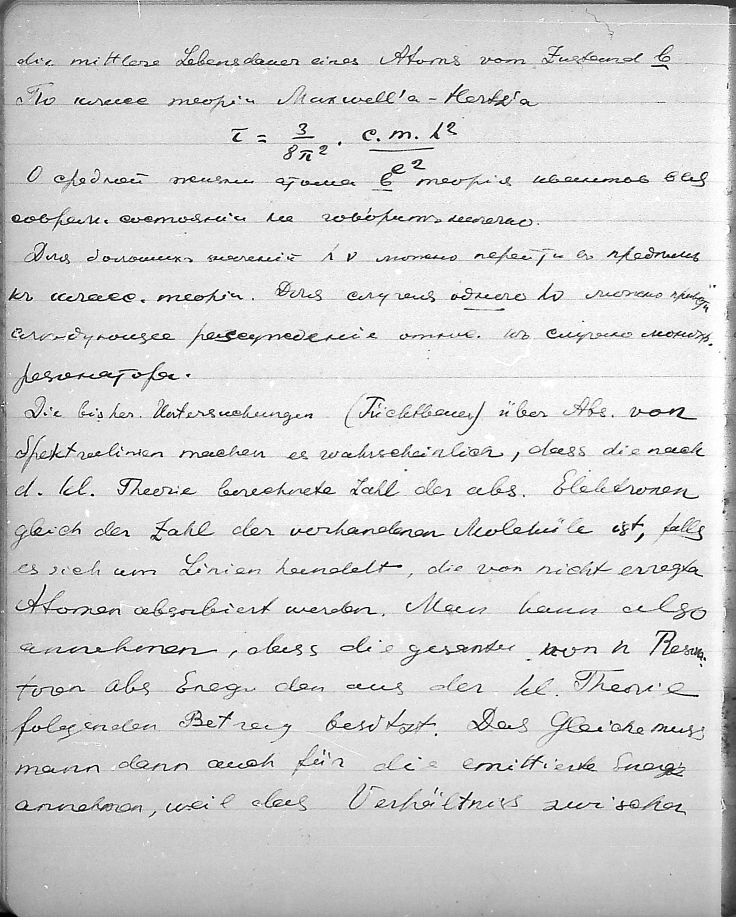 die mittlere Lebensdauer eines Atoms vom Zustand b
По класс теорiи Maxwell'a-Hertz'a
τ = 3/8π² · c.m.λ²/e²
О средней жизни атома b теорiя квантов в ея
соврем. состоянiи не говорит ничего.
Для больших значенiй λν можно перейти в пределѣ
къ класс. теорiи. Для случая одного hν можно
следующее разсужденiе относ. къ случаю
резонатора.
Die bisher. Untersuchungen (Füchtbauer) über Abs. von
Spektrallinien machen es wahrscheinlich, dass die nach
d. kl. Theorie berechnete Zahl der abs. Elektronen
gleich der Zahl der vorhandenen Moleküle ist, falls
es sich um Linien handelt, die von nicht erregten
Atomen absorbiert werden. Man kann also
annehmen, dass die gesamte von n Reson.
toren abs Energ den aus der kl. Theorie
folgenden Betrag besitzt. Das Gleiche muss
mann dann auch für die emittierte Energie
annehmen, weil das Verhältniss zwischen